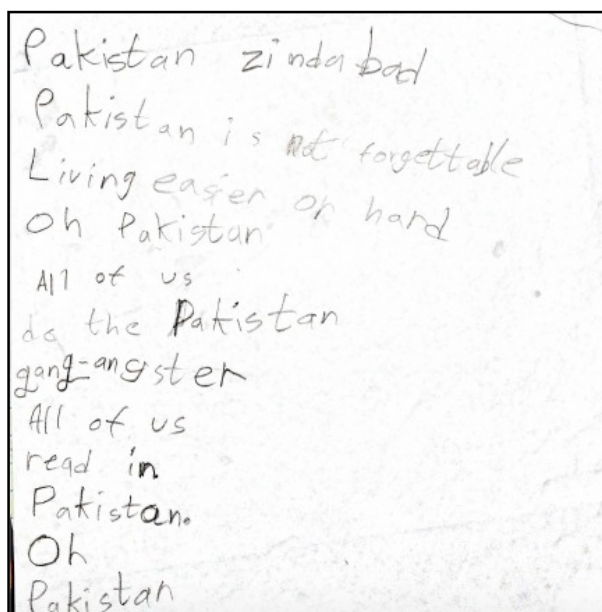 Pakistan zindabad
Pakistan is not forgettable
Living easier or hard
Oh Pakistan
All of us
do the Pakistan
gang-angster
All of us
read in
Pakistan.
Oh
Pakistan